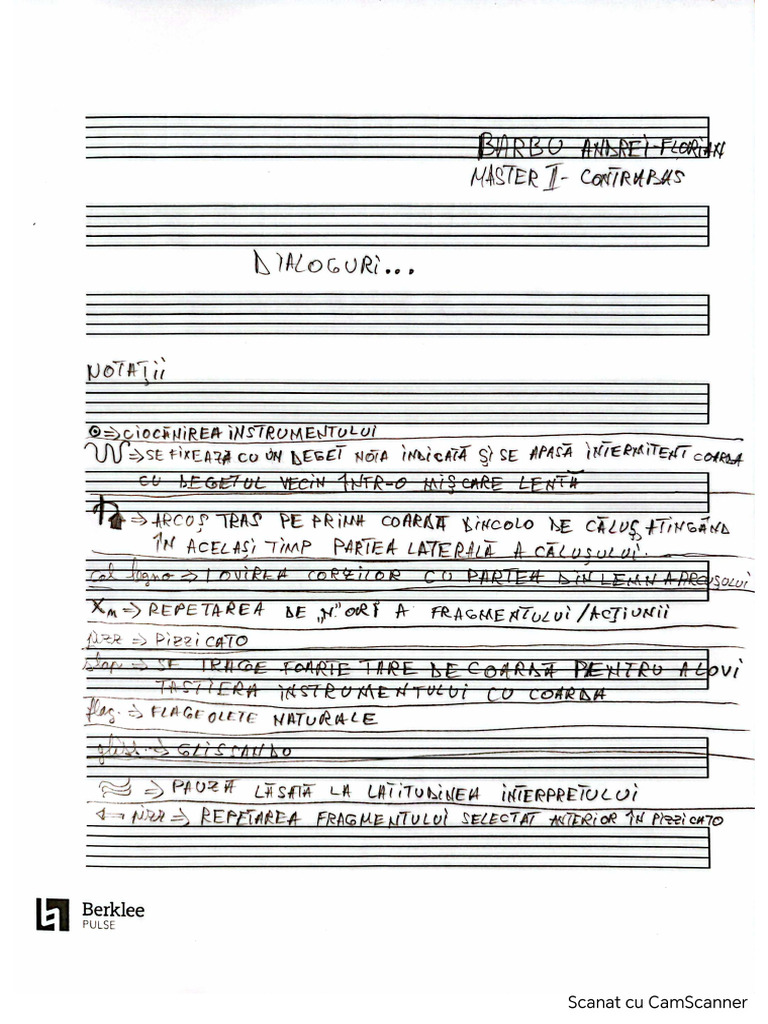 BARBU ANDREI-FLORIAN
MASTER II - CONTRABAS
DIALOGURI...
NOTAȚII
⊙ => CIOCĂNIREA INSTRUMENTULUI
=> SE FIXEAZĂ CU UN DEGET NOTA INDICATĂ ȘI SE APASĂ INTERMITENT COARDA
CU DEGETUL VECIN ÎNTR-O MIȘCARE LENTĂ
=> ARCUȘ TRAS PE PRIMA COARDĂ DINCOLO DE CĂLUȘ ATINGÂND
ÎN ACELAȘI TIMP PARTEA LATERALĂ A CĂLUȘULUI.
col legno => LOVIREA CORZILOR CU PARTEA DIN LEMN A ARCUȘULUI
Xn => REPETAREA DE „N" ORI A FRAGMENTULUI/ACȚIUNII
pizz => PIZZICATO
slap => SE TRAGE FOARTE TARE DE COARDĂ PENTRU A LOVI
TASTIERA INSTRUMENTULUI CU COARDA
flag. => FLAGEOLETE NATURALE
glist. => GLISSANDO
=> PAUZĂ LĂSATĂ LA LATITUDINEA INTERPRETULUI
← pizz => REPETAREA FRAGMENTULUI SELECTAT ANTERIOR ÎN PIZZICATO
Berklee
PULSE
Scanat cu CamScanner